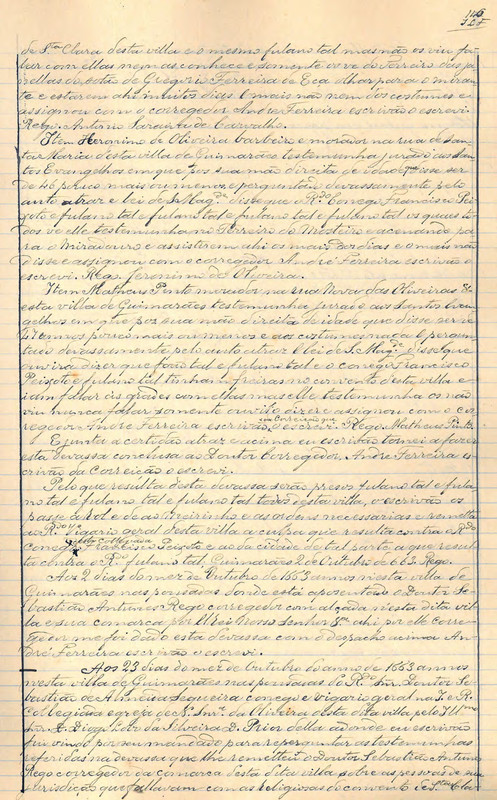 146
de Sta Clara desta villa e o mesmo fulano tal mas não os viu fa
lar com ellas nem as conhece e somente os ve do Terreiro das ja
nellas do sotão de Gregorio Ferreira de Eça olhar para o miran
te e estarem ahi muitos dias. E mais não nem dos costumes e
assignou com o corregedor André Ferreira escrivão o escrevi.
Rego. Antonio Saraiva de Carvalho.
Item Heronimo de Oliveira barbeiro e morador na rua de San
ta Maria desta villa de Guimarães testemunha jurado aos San
tos Evangelhos em que poz sua mão direita de idade que disse ser
de 46 pouco mais ou menos e perguntado devassamente pelo
auto atraz e lei de S. Mag.e disse que o Rdo Conego Francisco Pei
xoto e fulano tal e fulano tal e fulano tal e fulano tal os quaes to
dos ve elle testemunha no Terreiro do Mosteiro e acenando pa
ra o Miradouro e assistirem ahi os mais dos dias e o mais não
disse e assignou com o corregedor André Ferreira escrivão o
escrevi. Rego. Jeronimo de Oliveira.
Item Matheus Pinto morador na rua Nova das Oliveiras
desta villa de Guimarães testemunha jurado aos Santos Evan
gelhos em que poz sua mão direita de idade que disse ser de
47 annos pouco mais ou menos e aos costumes nada e pergun
tado devassamente pelo auto atraz e lei de S. Mag.e disse que
ouvira dizer que foão tal e fulano tal e o conego Francisco
Peixoto e fulano tal tinham freiras no convento desta villa e
iam falar ás grades com ellas mas elle testemunha os não
viu nunca falar somente ouvio dizer e assignou com o cor
regedor Andre Ferreira escrivão da Correição que o escrevi. Rego. Matheus Pinto.
E junta a certidão atraz e acima eu escrivão tornei a fazer
esta devassa conclusa ao Doutor Corregedor, André Ferreira es
crivão da Correição o escrevi.
Pelo que resulta desta devassa serão presos fulano tal e fula
no tal e fulano tal e fulano tal todos desta villa, o escrivão os
passe ao rol e de ao meirinho e as ordens necessarias e remetta
ao Rdo Vigario geral desta villa a culpa que resulta contra o Rdo
conego Francisco Peixoto e ao da cidade de tal parte a que resul
ta contra o R. fulano tal. Guimarães 2 de Outubro de 663. Rego.
Aos 2 dias do mez de Outubro de 1663 annos nesta villa de
Guimarães nas pousadas donde está aposentado o Doutor Se
bastião Antunes Rego corregedor com alçada nesta dita vil
la e sua comarca por El Rei Nosso Senhor ahi por elle corre
gedor me foi dado esta devassa com o Despacho acima An
dré Ferreira escrivão o escrevi.
Aos 23 dias do mez de Outubro do anno de 1663 annos
nesta villa de Guimarães nas pousadas do Rdo Snr. Doutor Se
bastião de Almeida Sequeira conego e vigario geral na I. e R.
Collegiada egreja de N. Snra da Oliveira desta dita villa pelo Illmo
Snr. D. Diogo Lobo da Silveira D. Prior della adonde eu escrivão
fui vindo por seu mandado para reperguntar as testemunhas
referidas na devassa que lhe remetteu o Doutor Sebastião Antunes
Rego corregedor da comarca desta dita villa sobre as pessoas de sua
jurisdicção que fallavam com as religiosas do convento de Sta Cla